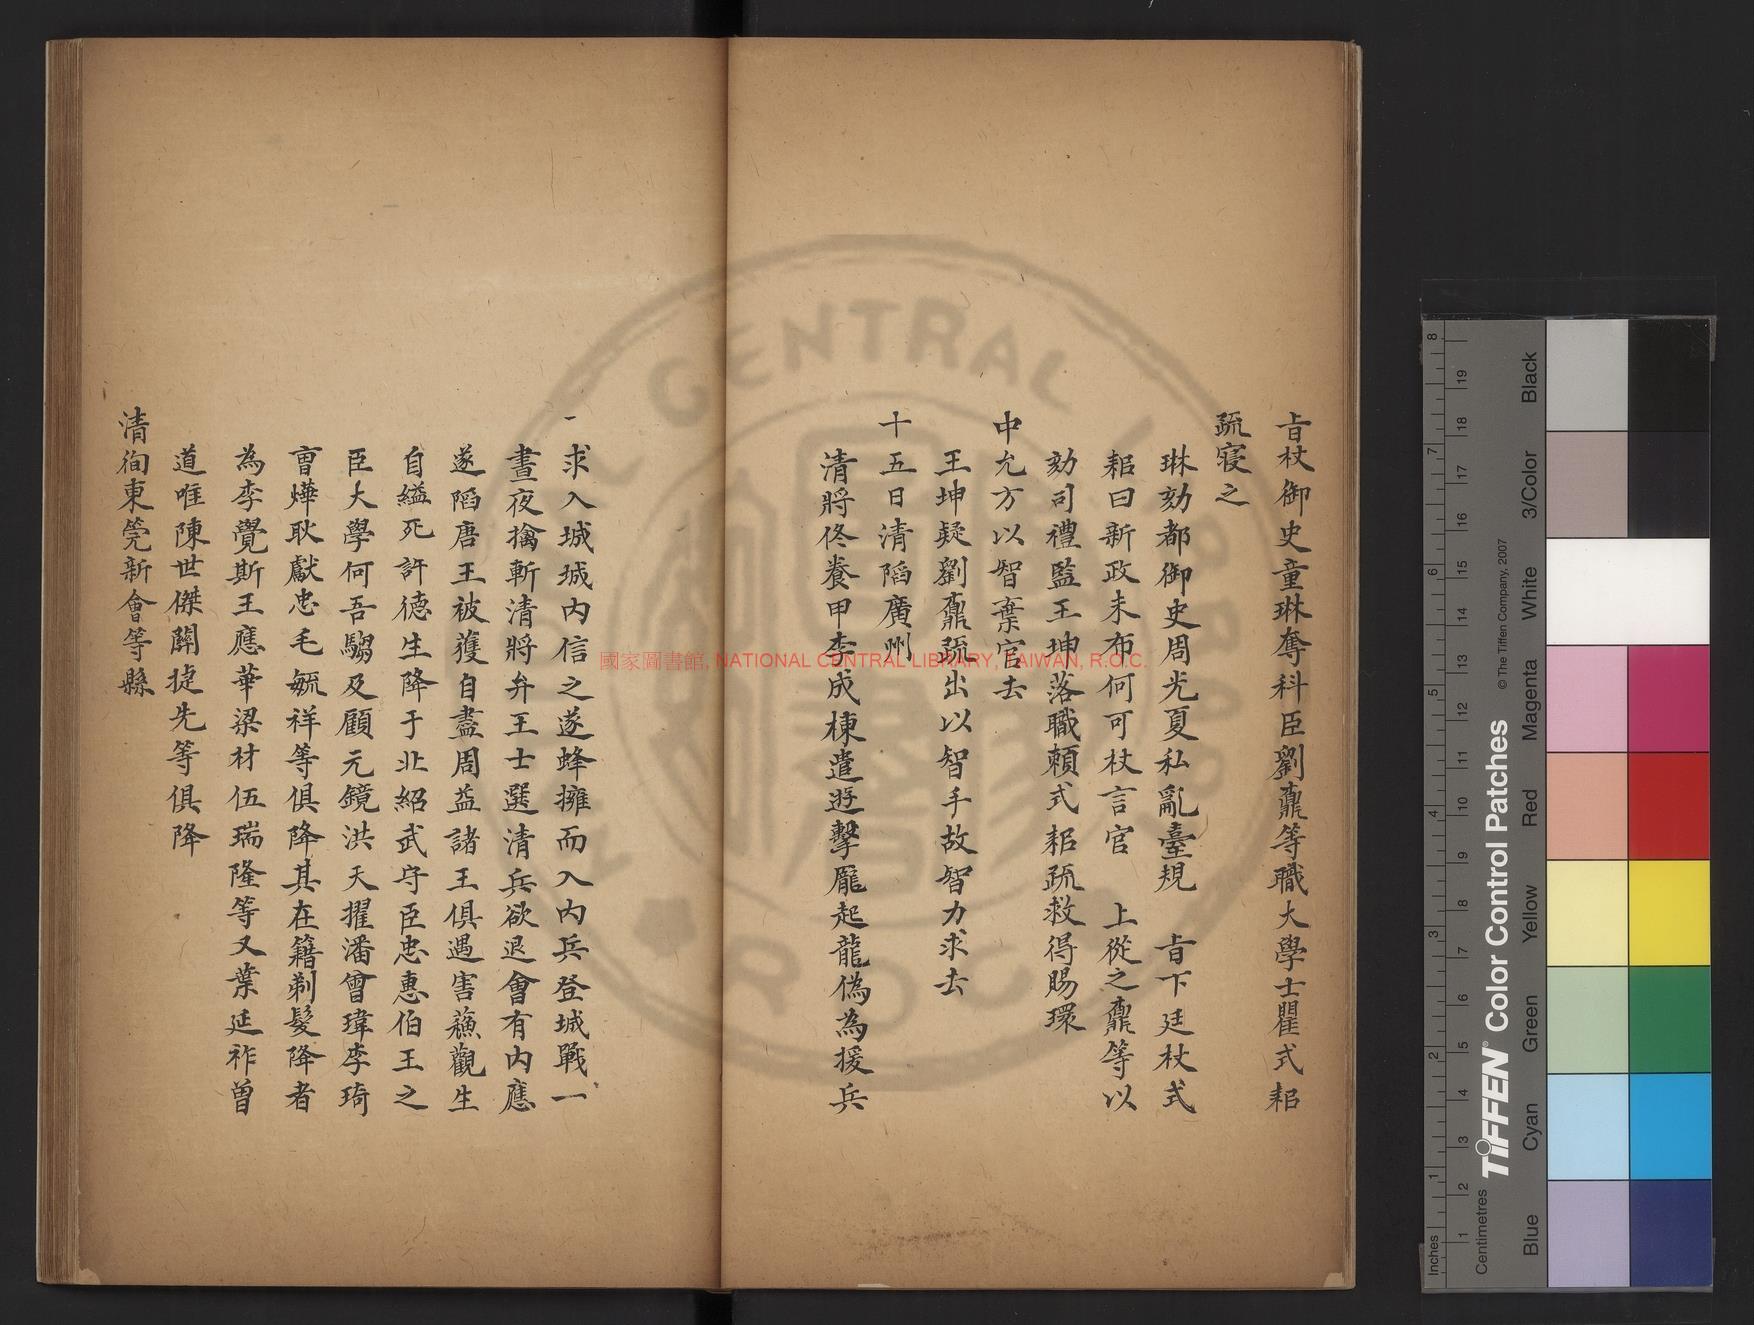 旨杖御史童琳奪科臣劉鼒等職大學士瞿式耜
疏寢之
琳劾都御史周光夏私亂臺規　旨下廷杖式
耜曰新政未布何可杖言官　上從之鼒等以
劾司禮監王坤落職賴式耜疏救得賜環
中允方以智棄官去
王坤疑劉鼒疏出以智手故智力求去
十五日清陷廣州
清將佟養甲李成棟遣遊擊龎起龍偽為援兵
一求入城城內信之遂蜂擁而入內兵登城戰一
晝夜擒斬清將弁王士選清兵欲退會有內應
遂陷唐王被獲自盡周益諸王俱遇害蘓觀生
自縊死許德生降于北紹武守臣忠惠伯王之
臣大學何吾騶及顧元鏡洪天擢潘曾瑋李琦
曺燁耿獻忠毛毓祥等俱降其在籍剃髮降者
為李覺斯王應華梁材伍瑞隆等又葉廷祚曾
道唯陳世傑關捷先等俱降
清徇東筦新會等縣
國家圖書館, NATIONAL CENTRAL LIBRARY, TAIWAN, R.O.C.
CENTRAL
R.O.C.
TIFFEN® Color Control Patches
© The Tiffen Company, 2007
Inches
Centimetres
Blue
Cyan
Green
Yellow
Red
Magenta
White
3/Color
Black